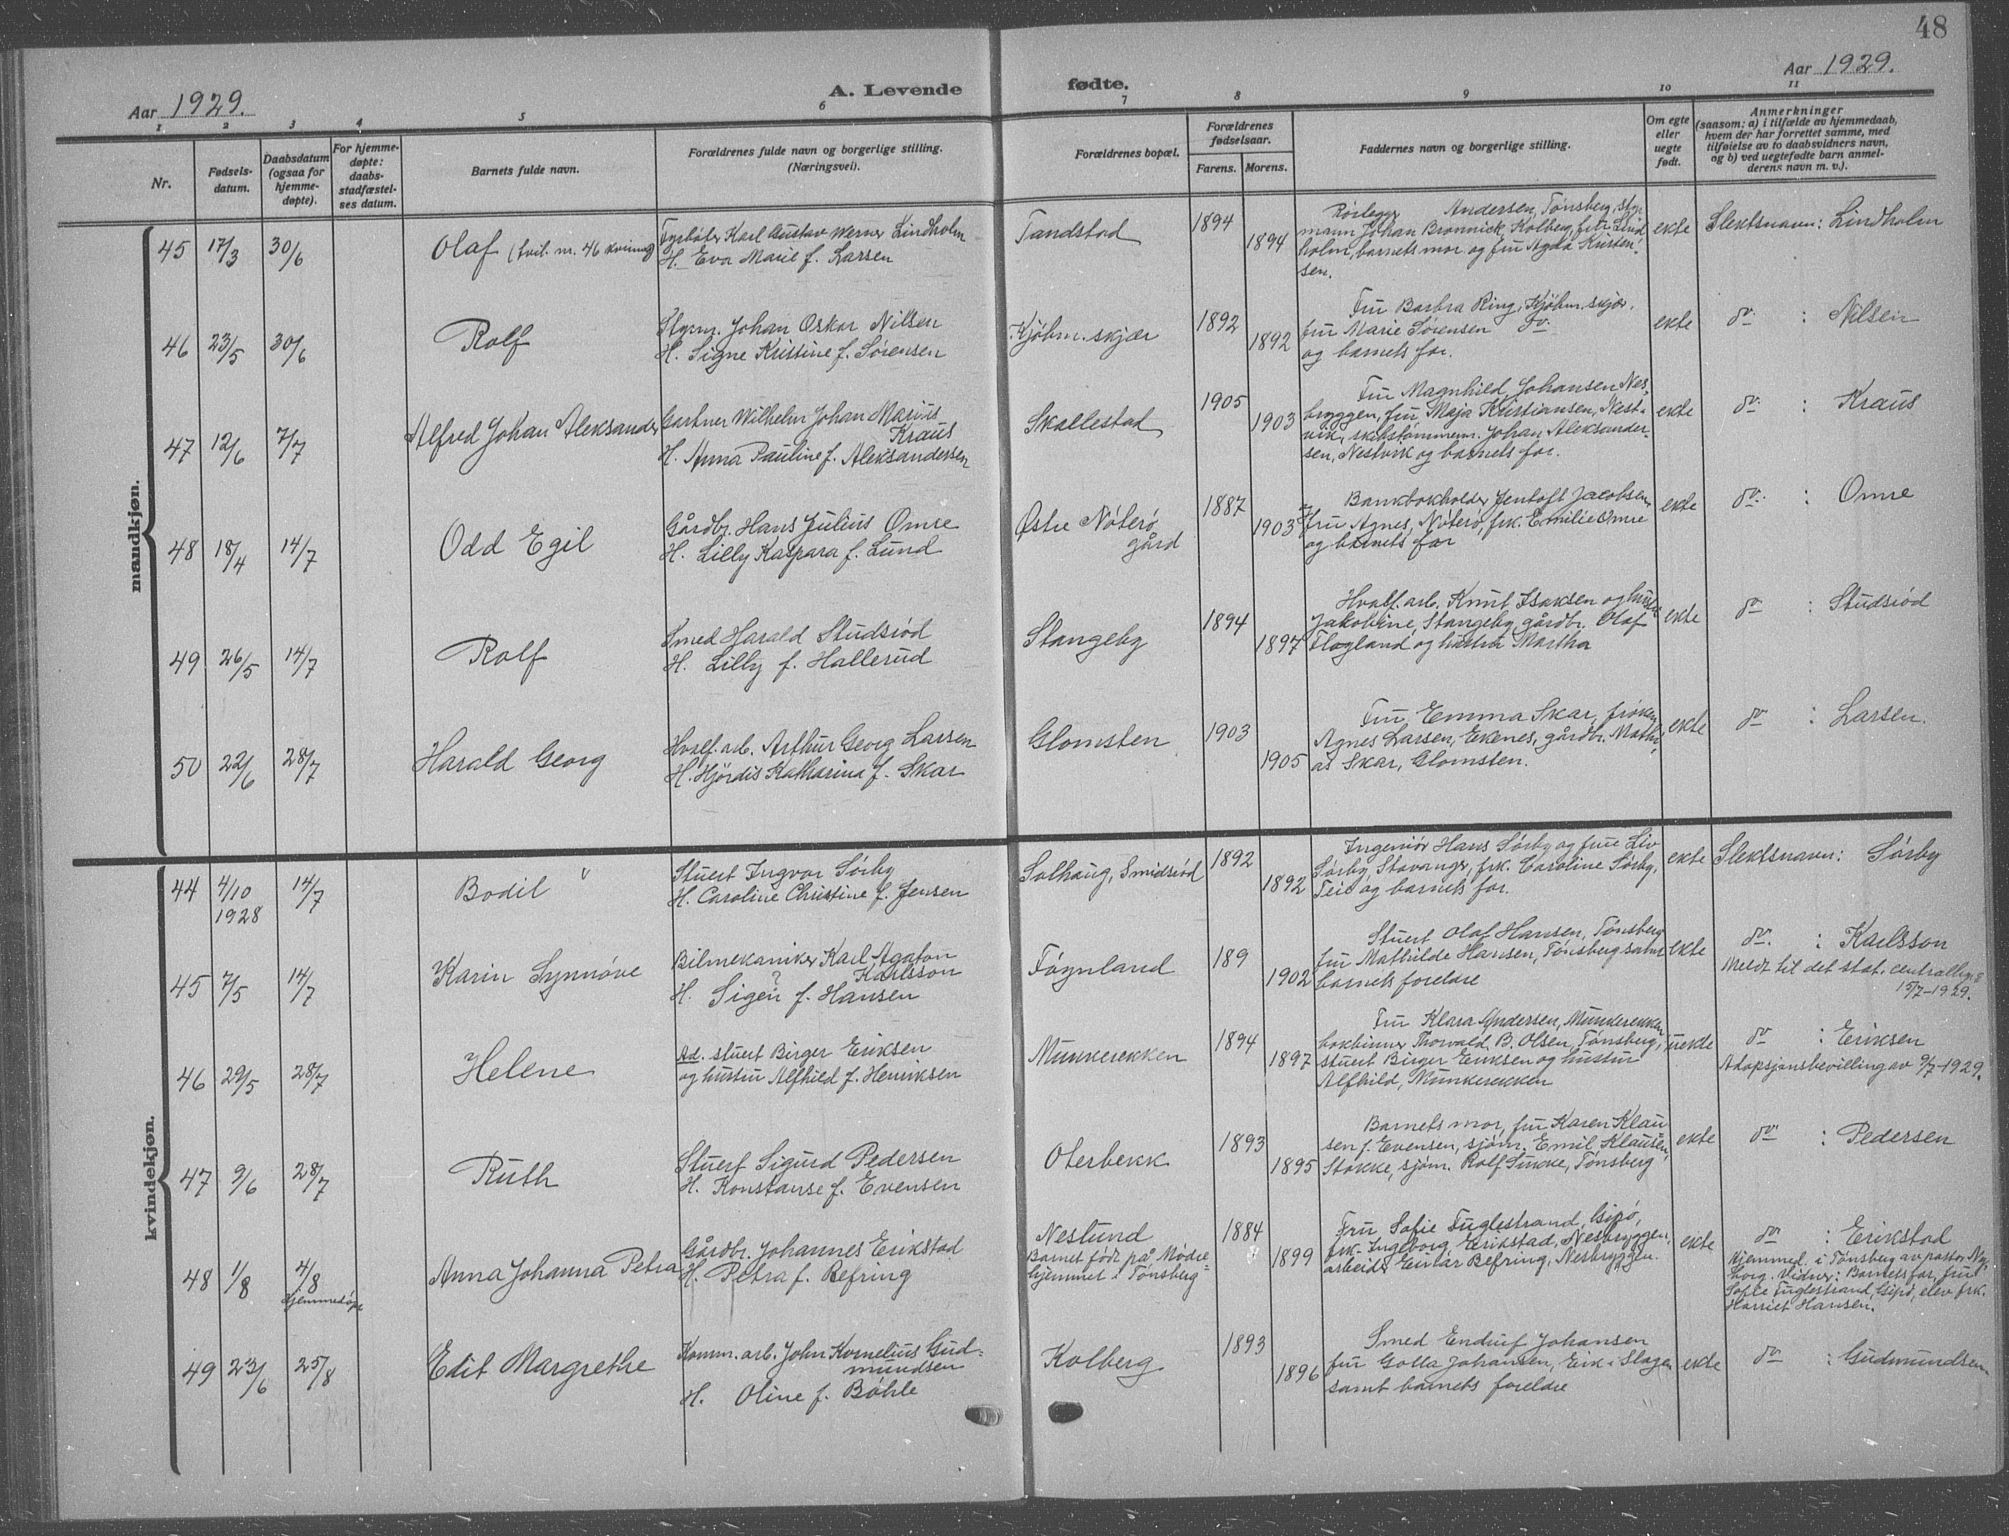 48
Aar 1929.
A. Levende
fødte.
Aar 1929.
1 2 3 4 5 6 7 8 9 10 11
Nr.
Fødsels-
datum.
Daabsdatum
(ogsaa for
hjemme-
døpte).
For hjemme-
døpte:
daabs-
stadfæstel-
ses datum.
Barnets fulde navn.
Forældrenes fulde navn og borgerlige stilling.
(Næringsvei).
Forældrenes bopæl.
Forældrenes
fødselsaar.
Farens. Morens.
Faddernes navn og borgerlige stilling.
Om egte
eller
uegte
født.
Anmerkninger
(saasom: a) i tilfælde av hjemmedaab,
hvem der har forrettet samme, med
tilføielse av to daabsvidners navn,
og b) ved uegtefødte barn anmel-
derens navn m. v.).
mandkjøn.
45 17/3 30/6 Olaf (tvil. nr. 46 kvinnek)
Fyrbøter Karl Gustav Werner Lindholm
H. Eva Marie f. Larsen
Tandstad
1894
1894
Rørlegger Andersen, Tønsberg, sty-
mann Johan Brunvick, Kolberg, fru Lind
holm, barnets mor og fru Agda Kristen-
sen.
ekte
Slektsnavn: Lindholm
46 23/5 30/6 Rolf
Styrm. Johan Oskar Nilsen
H. Signe Kristine f. Sørensen
Kjøbm.skjær
1892
1892
Fru Barbra Ring, Kjøbm.skjær.
fru Marie Sørensen do.
og barnets far.
ekte
do : Nilsen
47 12/6 7/7 Alfred Johan Aleksander
Gartner Wilhelm Johan Marius
Kraus
H. Anna Pauline f. Aleksandersen
Skallestad
1905
1903
Fru Magnhild Johansen Nes-
bryggen, fru Maja Kristiansen, Nest-
vik, skibstømmerm. Johan Aleksander-
sen, Nestvik og barnets far.
ekte
do : Kraus
48 18/4 14/7 Odd Egil
Gårdbr. Hans Julius Omre
H. Lilly Kaspara f. Lund
Østre Nøterø
gård
1887
1903
Bankbokholder Jentoft Jacobsen
fru Agnes, Nøterø, frk. Emilie Omre
og barnets far
ekte
do : Omre
49 26/5 14/7 Rolf
Smed Harald Studsrød
H. Lilly f. Hallerud
Stangeby
1894
1897
Hvalf. arb. Knut Isaksen og hustru
Jakobine Stangeby, gårdbr. Olaf
Flogland og hustru Martha
ekte
do : Studsrød
50 22/6 28/7 Harald Georg
Hvalf. arb. Arthur Georg Larsen
H. Hjördis Katharina f. Skar
Glomsten
1903
1905
Fru Emma Skar, frøken
Agnes Larsen, Ekenes, gårdbr. Mathi-
as Skar, Glomsten.
ekte
do : Larsen.
kvindekjøn.
44 4/10 14/7 Bodil v
1928
Stuert Ingvar Sørby
H. Caroline Christine f. Jensen
Solhaug, Smidsrød
1892
1892
Ingeniør Hans Sørby og frue Liv
Sørby, Stavanger, frk. Caroline Sørby,
Teie og barnets far.
ekte
Slektsnavn: Sørby
45 7/5 14/7 Karin Synnøve
Bilmekaniker Karl Agaton
Karlsson
H. Sigen ? f. Hansen
Føynland
189
1902
Stuert Olaf Hansen, Tønsberg
fru Mathilde Hansen, Tønsberg samt
barnets foreldre
ekte
do. : Karlsson
Meldt til det stat. centralbyrå
15/7-1929.
46 29/5 28/7 Helene
Ad. stuert Birger Eriksen
og hustru Alfhild f. Henriksen
Munkerekken
1894
1897
Fru Klara Andersen, Munkerekken
bokbinner Thorvald B. Olsen, Tønsberg,
stuert Birger Eriksen og hustru
Alfhild, Munkerekken
uekte
do : Eriksen
Adopsjonsbevilling av 9/7-1929.
47 9/6 28/7 Ruth
Stuert Sigurd Pedersen
H. Konstanse f. Evensen
Oterbekk
1893
1895
Barnets mor, fru Karen Klau
sen f. Evensen, sjøm. Emil Klausen,
Stokke, sjøm. Rolf Simke, Tønsberg
ekte
do : Pedersen
48 1/8 4/8 Anna Johanna Petra
hjemmedøpt
Gårdbr. Johannes Erikstad
H. Petra f. Refring
Neslund
Barnet født på Mødre-
hjemmet i Tønsberg
1884
1899
Fru Sofie Fuglestrand, Gipø,
frk. Ingeborg Erikstad, Nesbryggen,
arbeider Einar Refring, Nesbryggen.
ekte
do : Erikstad
Hjemmed. i Tønsberg av pastor Ny-
borg. Vidner: Barnets far, fru
Sofie Fuglestrand, Gipø, elev frk.
Harriet Hansen.
49 23/6 25/8 Edit Margrethe
Komm. arb. John Kornelius Gud-
mundsen
H. Oline f. Bøhle
Kolberg
1893
1896
Smed Endruf Johansen
fru Gotta Johansen, Eik i Slagen
samt barnets foreldre
ekte
do : Gudmundsen